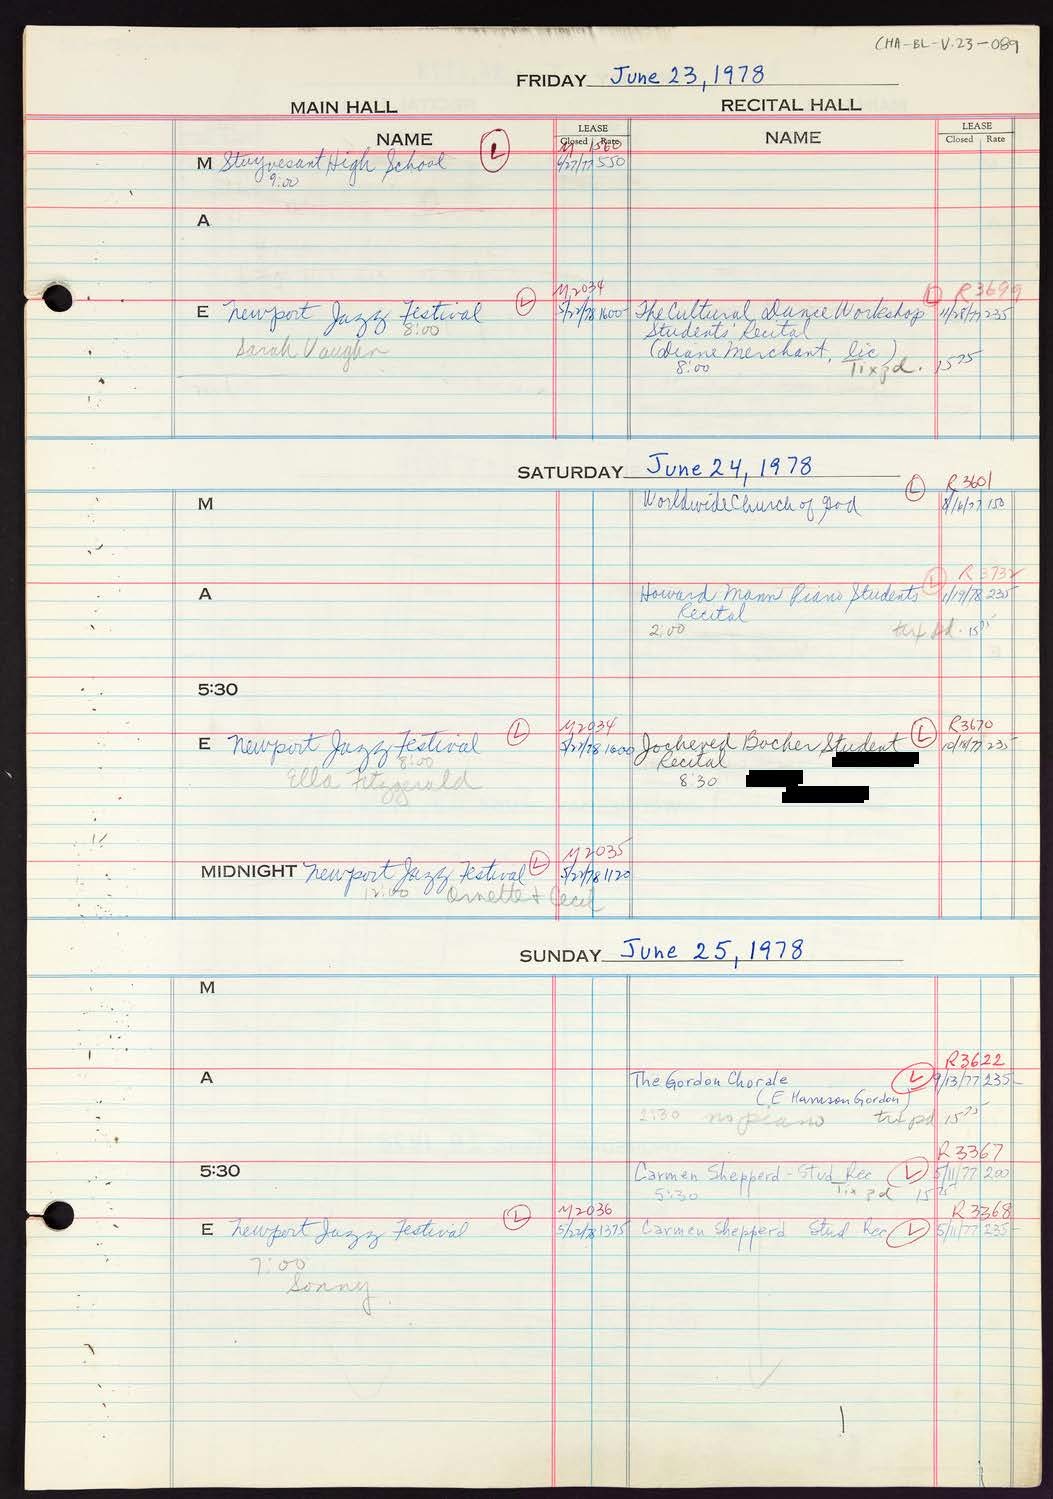 CHA-BL-V.23-089
FRIDAY June 23, 1978
MAIN HALL RECITAL HALL
NAME LEASE NAME LEASE
Closed Rate Closed Rate
M 1560
M Stuyvesant High School L 4/27/77 550
9:00
A
M2034 L R3699
E Newport Jazz Festival L 5/22/78 1600 The Cultural Dance Workshop 11/28/77 235
8:00 Students' Recital
Sarah Vaughn (Diane Merchant, lic)
8:00 Tix pd. 15 75
SATURDAY June 24, 1978
L R3601
M Worldwide Church of God 8/16/77 150
L R3732
A Howard Mann Piano Students 1/19/78 235
Recital
2:00 tix pd. 15 75
5:30
L M2034 L R3670
E Newport Jazz Festival 5/22/78 1600 Jocheved Bocher Student 10/18/77 235
8:00 Recital
Ella Fitzgerald 8:30
L M2035
MIDNIGHT Newport Jazz Festival 5/22/78 1120
12:00 Ornette & Cecil
SUNDAY June 25, 1978
M
R3622
A The Gordon Chorale L 9/13/77 235
(E Harrison Gordon)
2:30 no piano tix pd 15 75
R3367
5:30 Carmen Shepperd - Stud Rec L 5/11/77 200
5:30 Tix pd 15 75
L M2036 R3368
E Newport Jazz Festival 5/22/78 1375 Carmen Shepperd Stud Rec L 5/11/77 235
7:00
Sonny